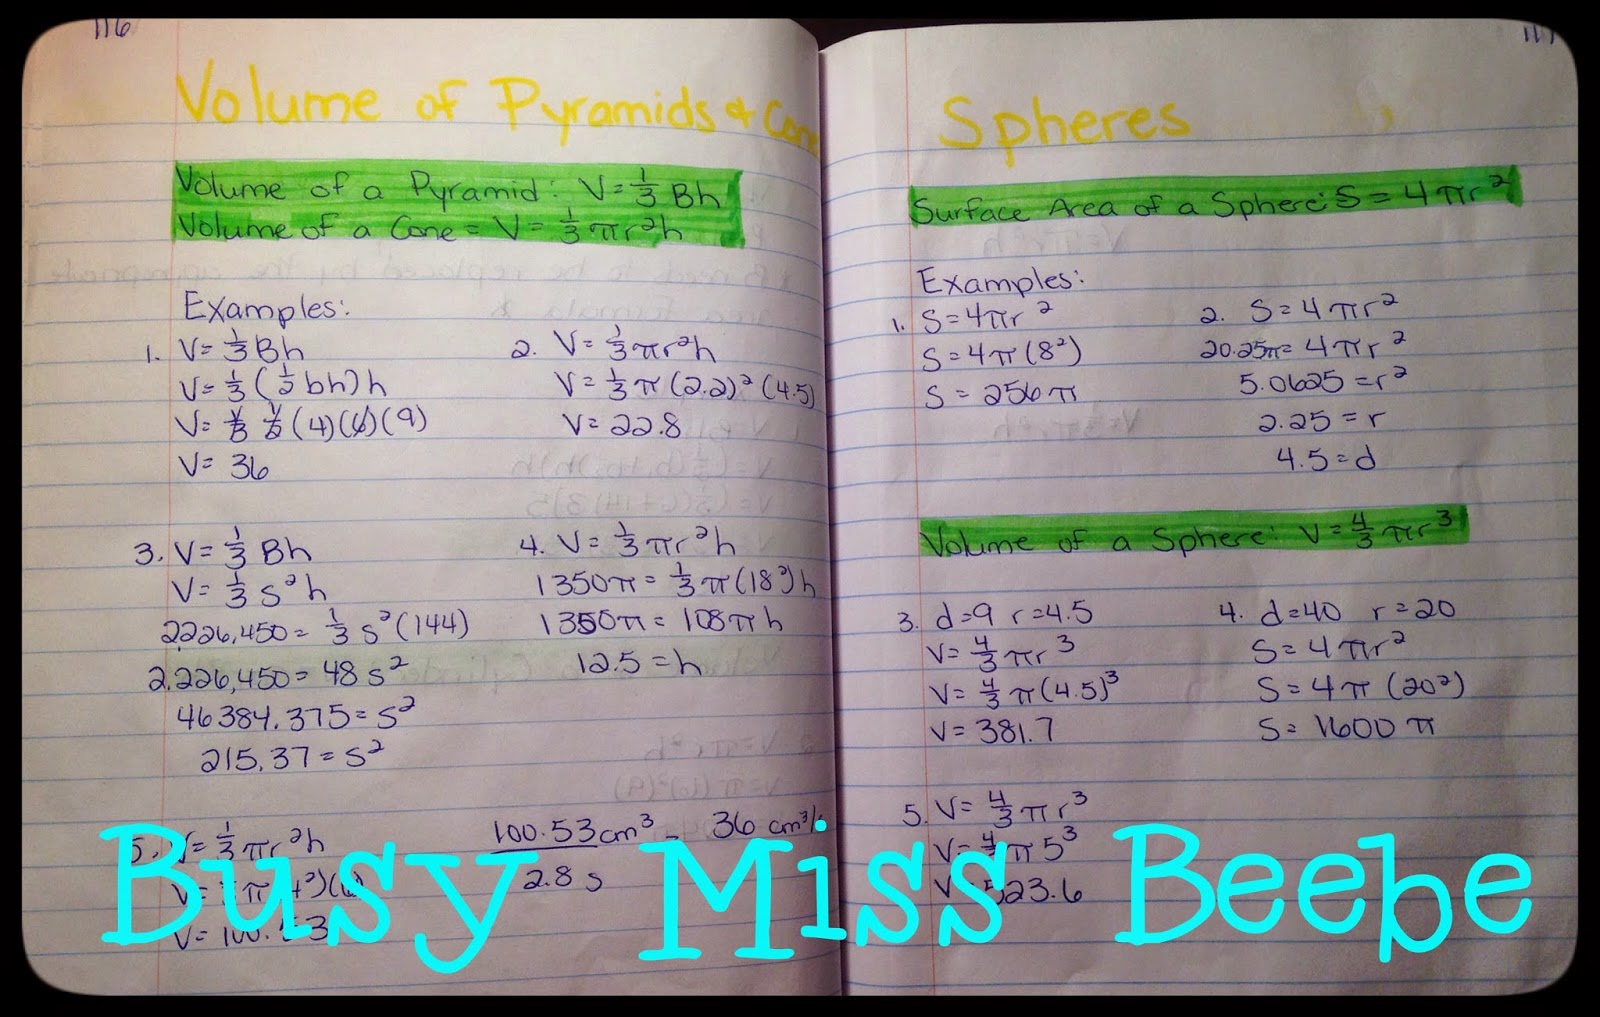 116
Volume of Pyramids & Con
Volume of a Pyramid: V = 1/3 Bh
Volume of a Cone = V = 1/3 πr²h
Examples:
1. V = 1/3 Bh
V = 1/3 (1/2 bh)h
V = 1/3 1/2 (4)(6)(9)
V = 36
2. V = 1/3 πr²h
V = 1/3 π (2.2)² (4.5)
V = 22.8
3. V = 1/3 Bh
V = 1/3 s²h
2,226,450 = 1/3 s² (144)
2,226,450 = 48 s²
46384.375 = s²
215.37 = s²
4. V = 1/3 πr²h
1350π = 1/3 π (18²) h
1350π = 108π h
12.5 = h
5. V = 1/3 πr²h
V = π 4²)(6
V = 100.53
100.53 cm³ = 36 cm³/
2.8 s
Spheres
Surface Area of a Sphere: S = 4πr²
Examples:
1. S = 4πr²
S = 4π (8²)
S = 256π
2. S = 4πr²
20.25π = 4πr²
5.0625 = r²
2.25 = r
4.5 = d
Volume of a Sphere: V = 4/3 πr³
3. d = 9 r = 4.5
V = 4/3 πr³
V = 4/3 π (4.5)³
V = 381.7
4. d = 40 r = 20
S = 4πr²
S = 4π (20²)
S = 1600 π
5. V = 4/3 πr³
V = 4/3 π 5³
V = 523.6
Busy Miss Beebe